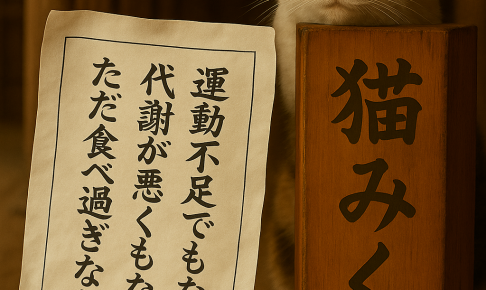 運動不足でもな
代謝が悪くもな
ただ食べ過ぎな
猫みく